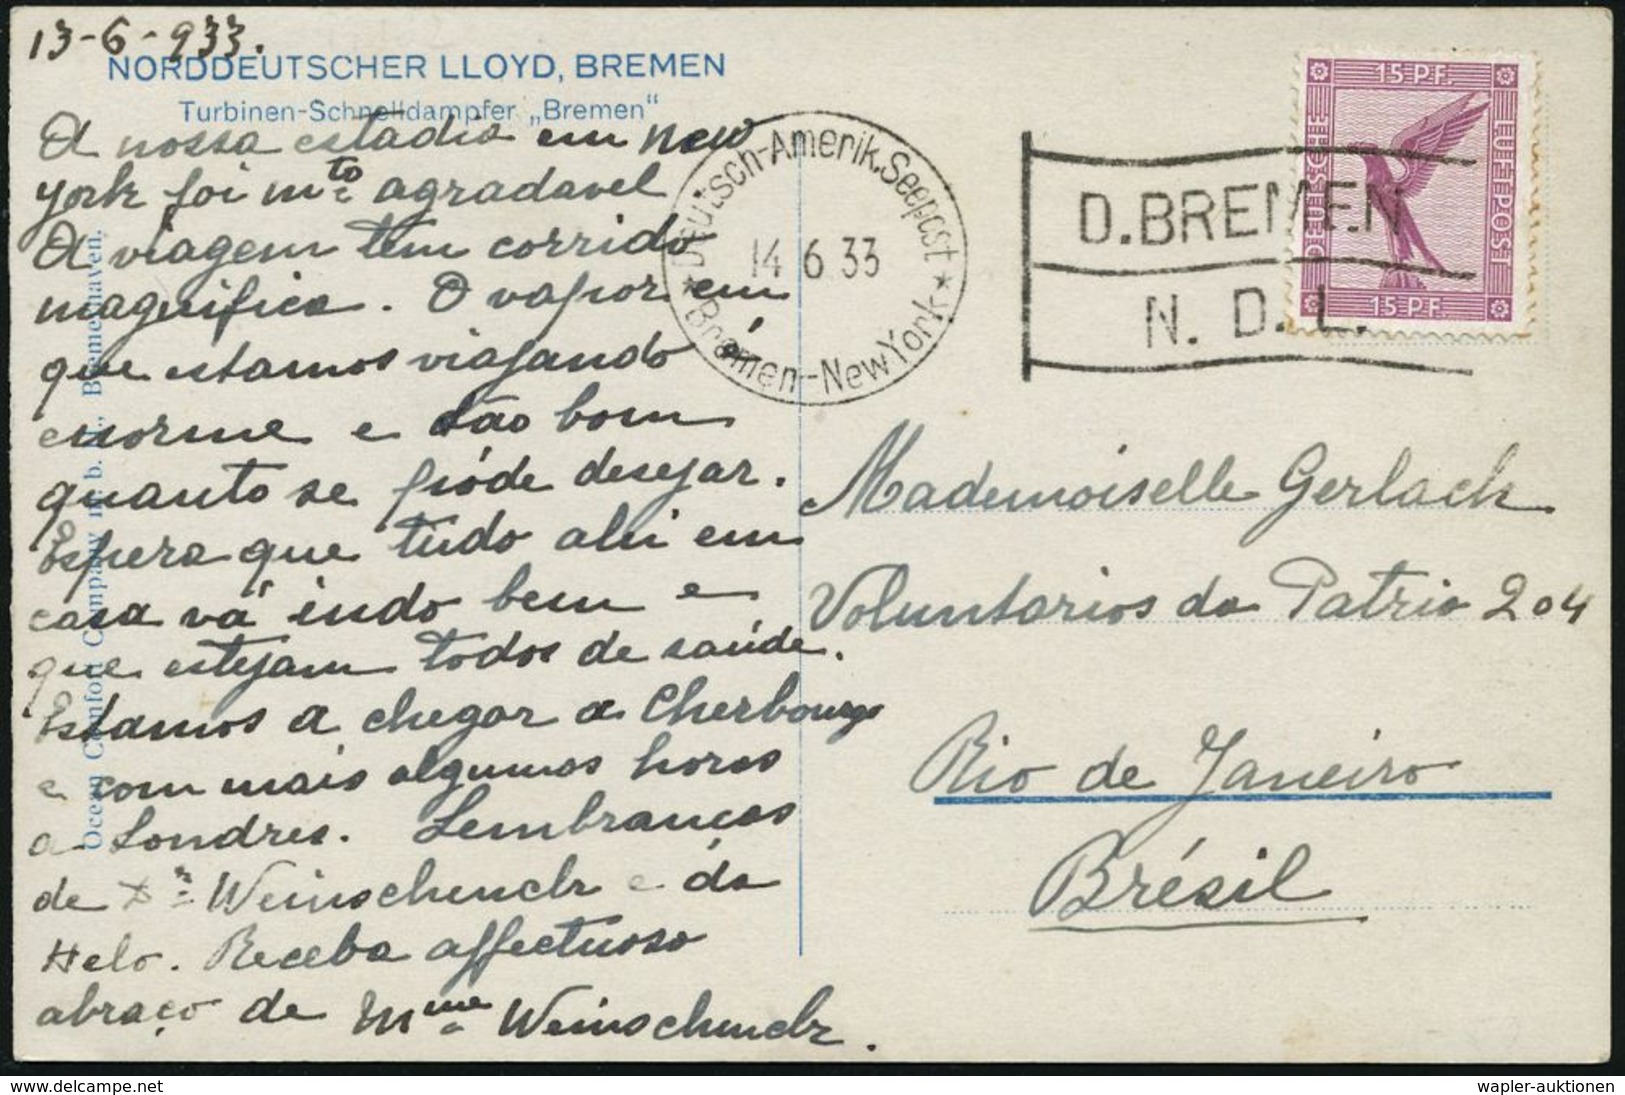 13-6-933.
NORDDEUTSCHER LLOYD, BREMEN
Turbinen-Schnelldampfer „Bremen"
A nossa estadia em New
York foi mto agradavel
A viagem tem corrido
magnifica. O vapor em
que estamos viajando
enorme e tão bom
quanto se póde desejar.
Espero que tudo ahi em
casa vá indo bem e
que estejam todos de saúde.
Estamos a chegar a Cherbourg
e com mais algumas horas
a Londres. Lembranças
de Weinschenck e da
Helo. Receba affectuoso
abraço de Mme Weinschenck.
Ocean Comfort Company m. b. H., Bremerhaven.
Deutsch-Amerik. Seepost
14 6 33
* Bremen-New York *
D. BREMEN
N. D. L.
15 PF.
DEUTSCHE
LUFTPOST
15 PF.
Mademoiselle Gerlach
Voluntarios da Patria 204
Rio de Janeiro
Brésil
www.delcampe.net
wapler-auktionen